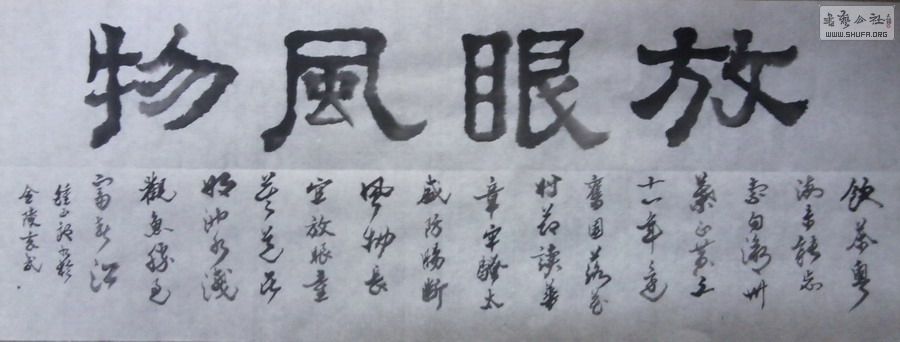 放眼風物
飲茶粵
海未能忘
索句渝州
葉正黄三
十一年還
舊國落花
時節讀華
章牢騷太
盛防腸斷
風物長
宜放眼量
莫道昆
明池水淺
觀魚勝過
富春江
金陵
書藝公社
WWW.SHUFA.ORG